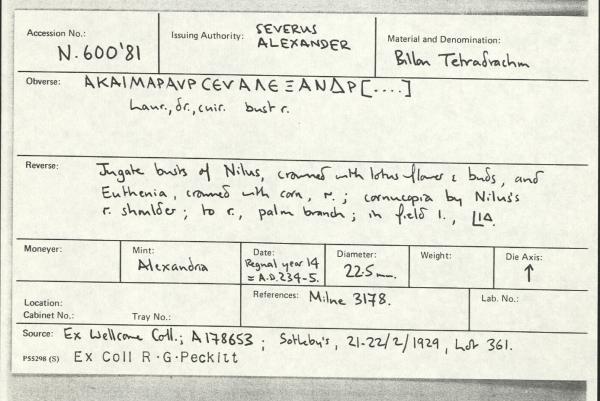 Accession No.: N.600'81
Issuing Authority: SEVERUS
ALEXANDER
Material and Denomination:
Billon Tetradrachm
Obverse: ΑΚΑΙΜΑΡΑVΡ CΕVΑΛΕΞΑΝΔΡ[....]
Laur., dr., cuir. bust r.
Reverse: Jugate busts of Nilus, crowned with lotus flower & buds, and
Euthenia, crowned with corn, r.; cornucopia by Nilus's
r. shoulder; to r., palm branch; in field l., LΙΔ.
Moneyer:
Mint:
Alexandria
Date:
Regnal year 14
= A.D. 234-5.
Diameter:
22.5 mm.
Weight:
Die Axis:
↑
Location:
Cabinet No.: Tray No.:
References: Milne 3178.
Lab. No.:
Source: Ex Wellcome Coll.; A178653; Sotheby's, 21-22/2/1929, Lot 361.
P55298 (S) Ex Coll R.G.Peckitt